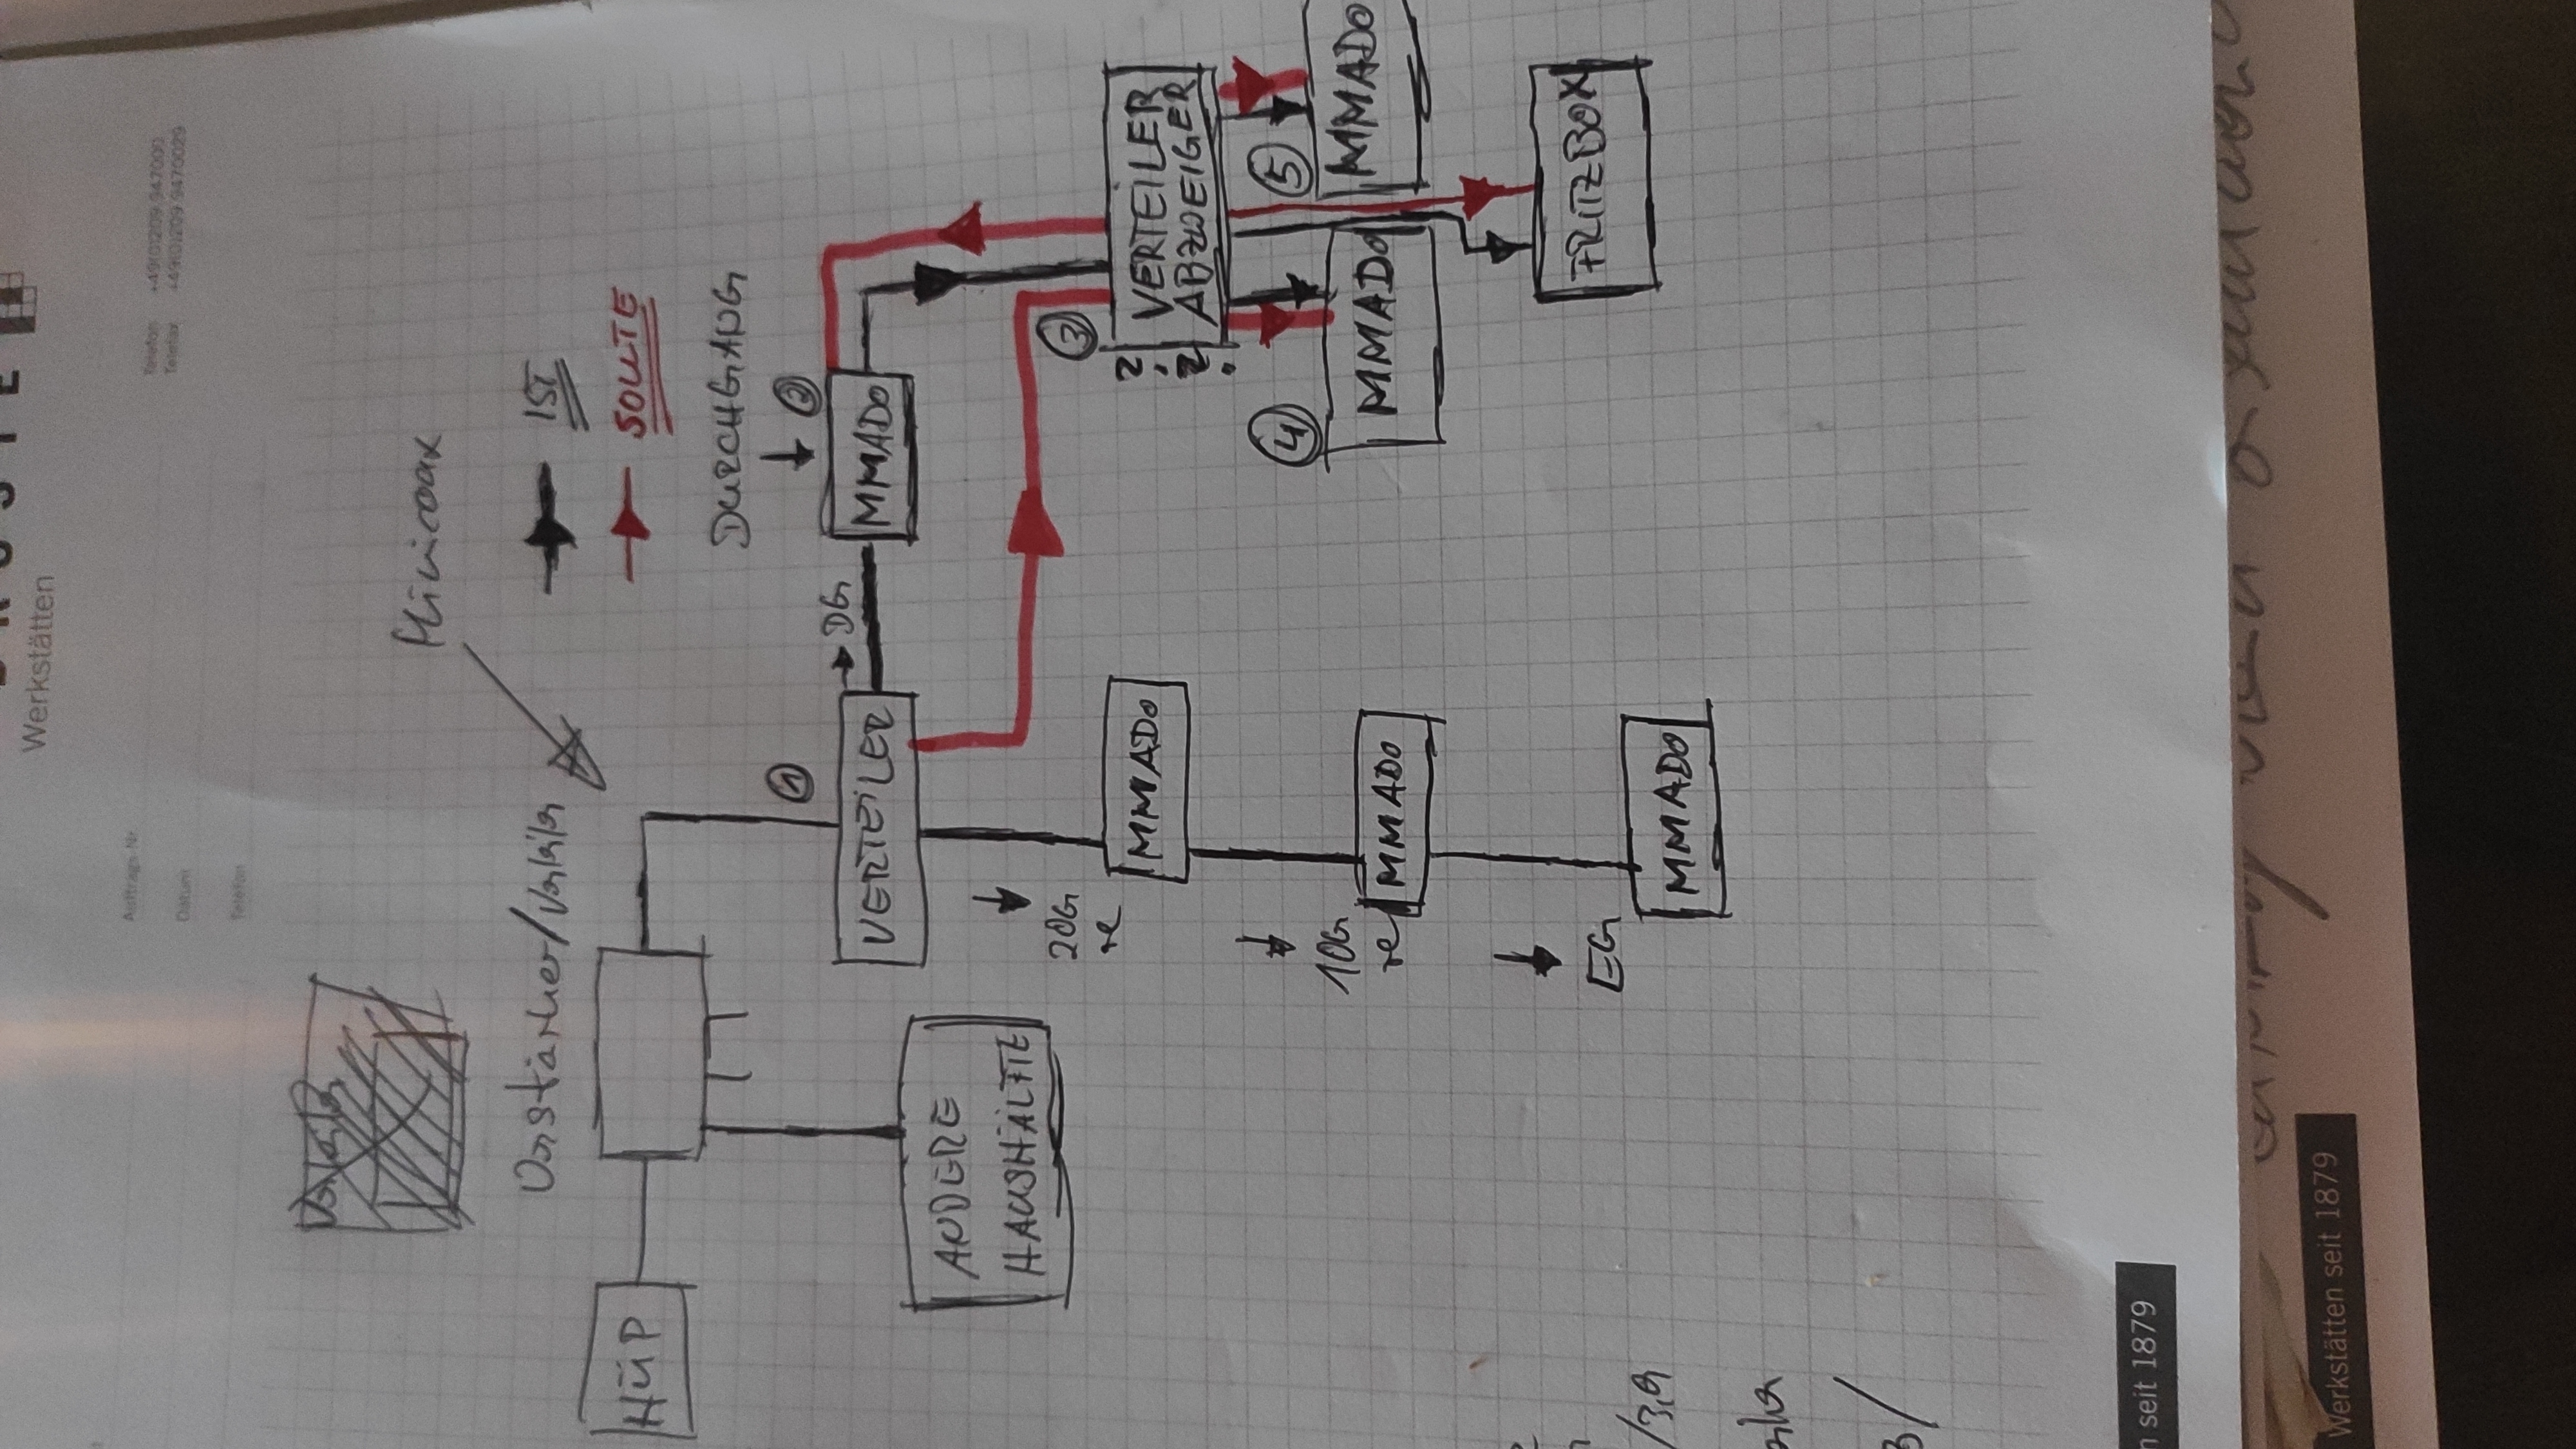 Werkstätten
Auftrags-Nr
Datum
Telefon
Telefon +49(0)1209.947000
Telefax +49(0)1209.9470029
Minicoax
IST
SOLLTE
Verstärker/Verteiler
HÜP
ANDERE
HAUSHÄLFTE
①
VERTEILER
DG
DURCHGANG
②
MMADO
③
VERTEILER
ABZWEIGER
? ?
④
MMADO
⑤
MMADO
FRITZBOX
2OG
re
MMADO
1OG
re
MMADO
EG
MMADO
n seit 1879
Werkstätten seit 1879